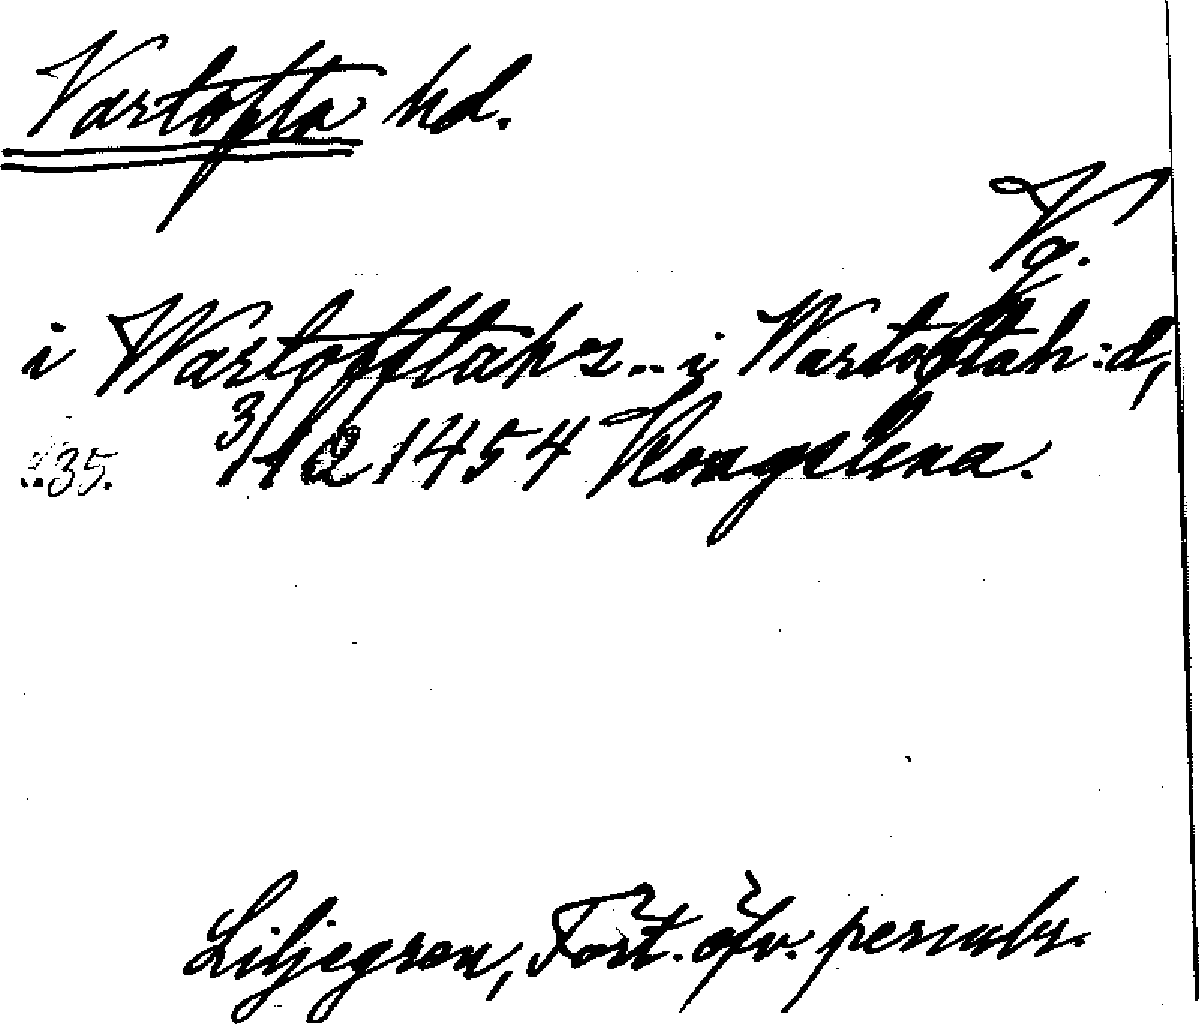 Vartofta hd.
Vg.
i Wartofftahr... i Wartoftah:d,
35. 3/12 1454 Kongslena.
Liljegren, Fört. öfv. permbr.